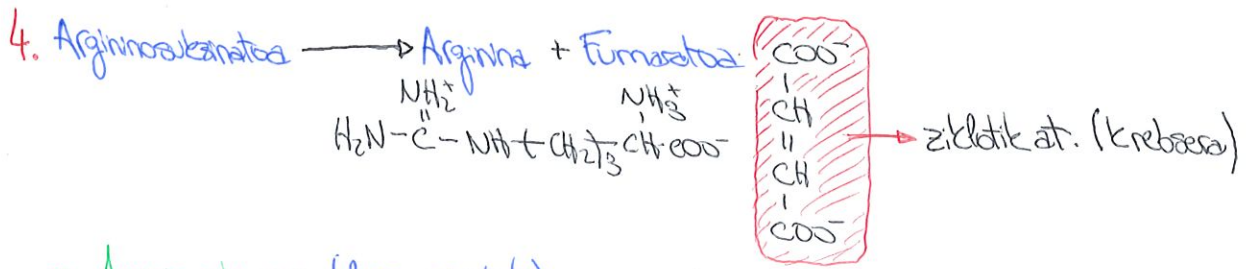 4. Argininosukzinatoa → Arginina + Fumaratoa
NH₂⁺
||
H₂N-C-NH-(CH₂)₃-CH-COO⁻
NH₃⁺
COO⁻
CH
||
CH
COO⁻
→ ziklotik at. (Krebsera)